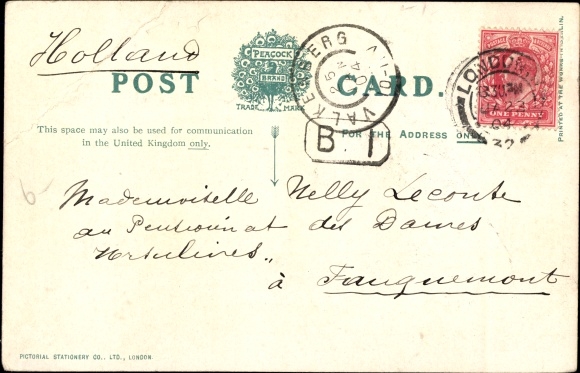 Holland
POST CARD.
PEACOCK
BRAND
TRADE MARK
VALKENBERG
25
04
LONDON
04
32
POSTAGE
ONE PENNY
This space may also be used for communication
in the United Kingdom only.
FOR THE ADDRESS ONLY
B I
Mademoiselle Nelly Leconte
au Pensionnat des Dames
Ursulines„
à Fauquemont
PICTORIAL STATIONERY CO., LTD., LONDON.
PRINTED AT THE WORKS BERLIN.